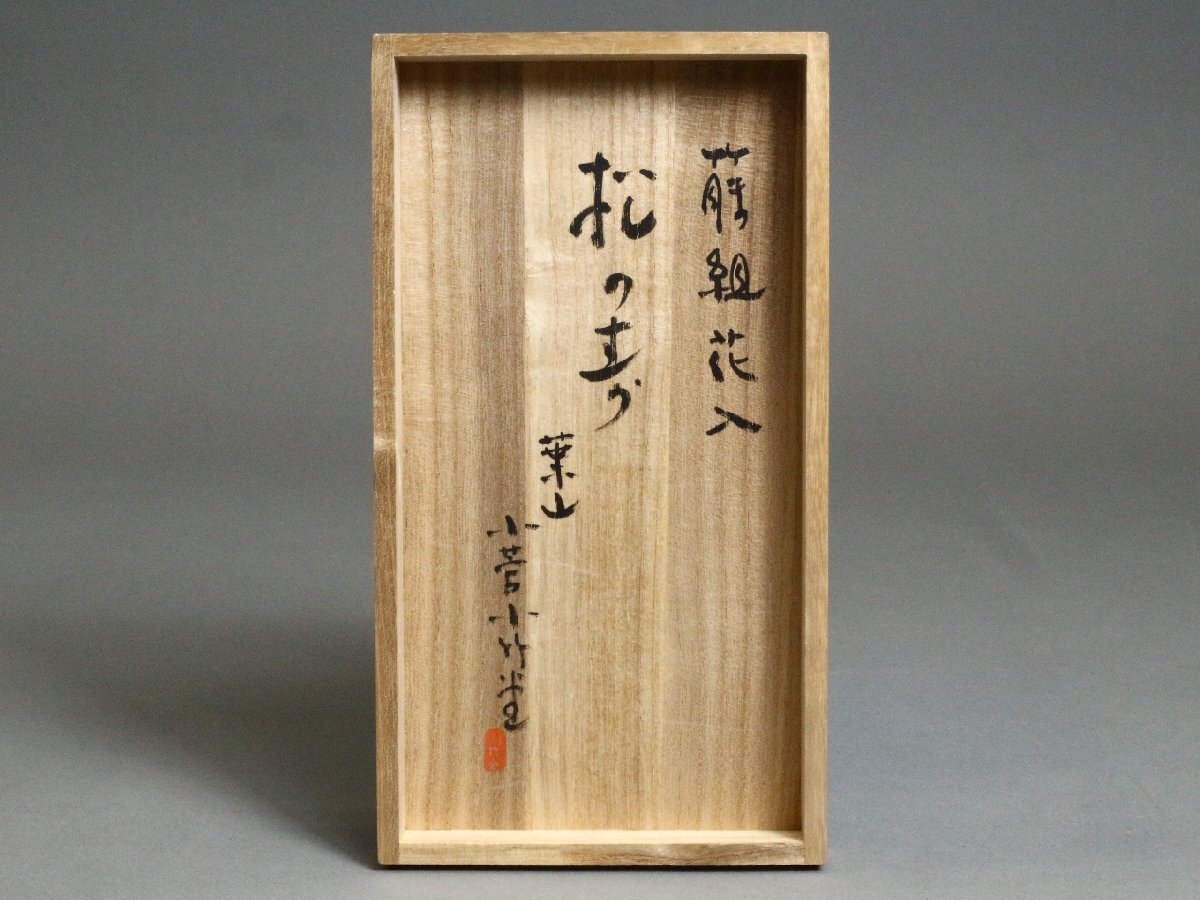 藤組花入
松の寿
葉山
小菅小竹堂